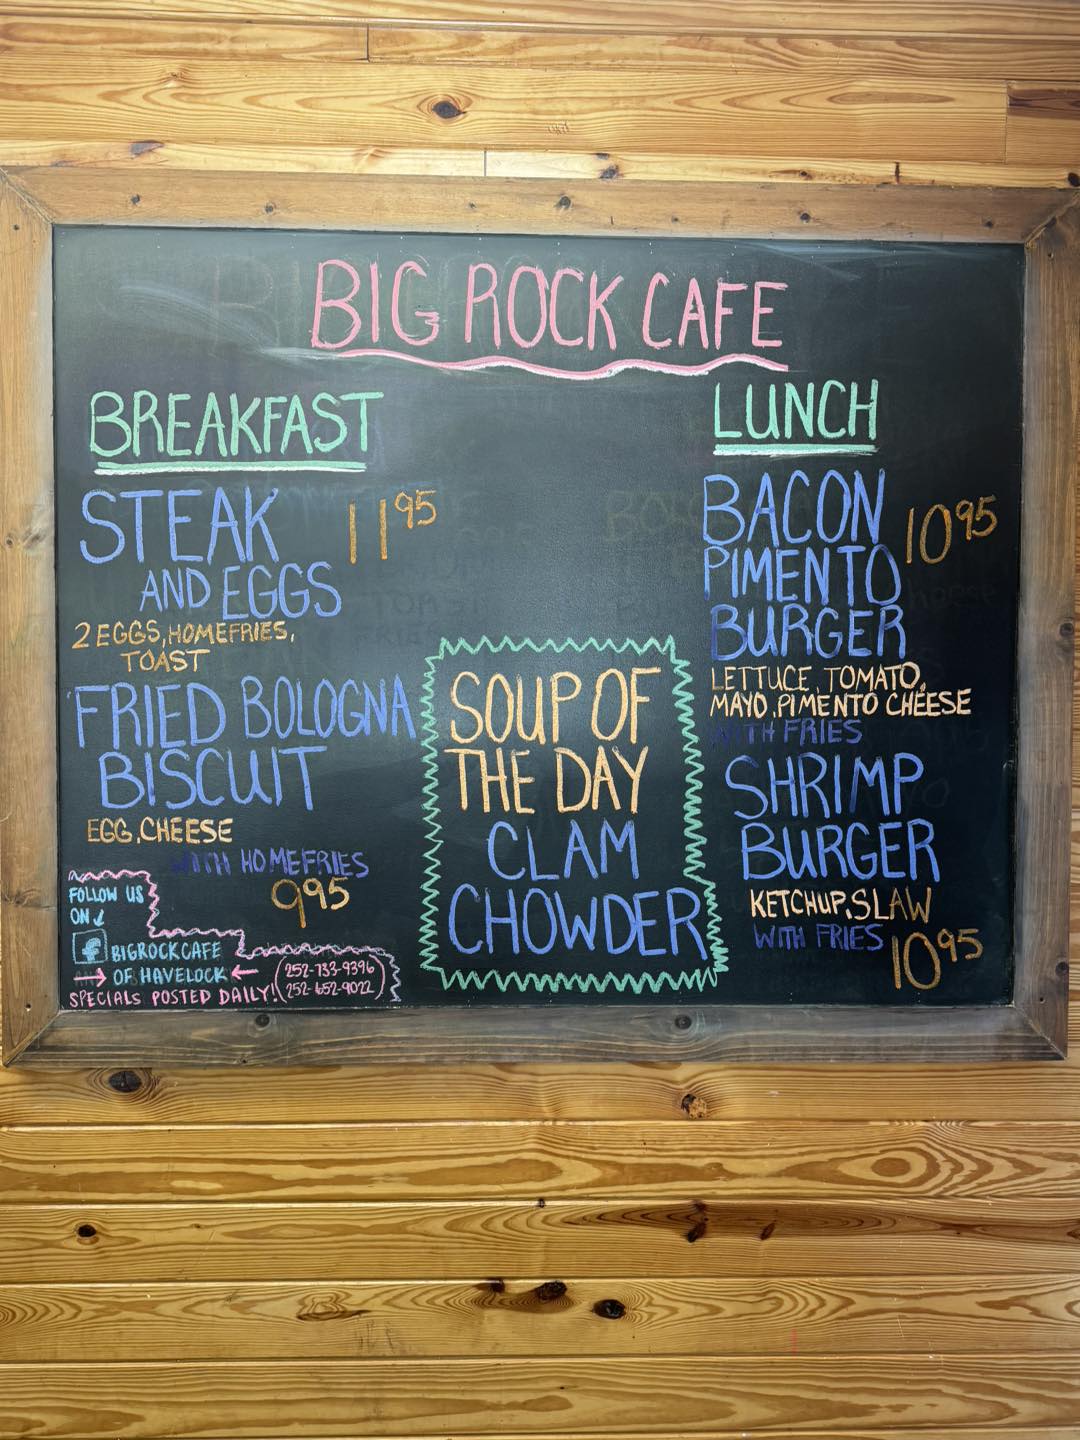 BIG ROCK CAFE
BREAKFAST
STEAK 11 95
AND EGGS
2 EGGS, HOMEFRIES,
TOAST
FRIED BOLOGNA
BISCUIT
EGG, CHEESE
WITH HOMEFRIES
9 95
FOLLOW US
ON
f BIGROCKCAFE
→ OF HAVELOCK ←
SPECIALS POSTED DAILY!
(252-733-9396
252-652-9022)
SOUP OF
THE DAY
CLAM
CHOWDER
LUNCH
BACON 10 95
PIMENTO
BURGER
LETTUCE, TOMATO,
MAYO, PIMENTO CHEESE
WITH FRIES
SHRIMP
BURGER
KETCHUP, SLAW
WITH FRIES
10 95